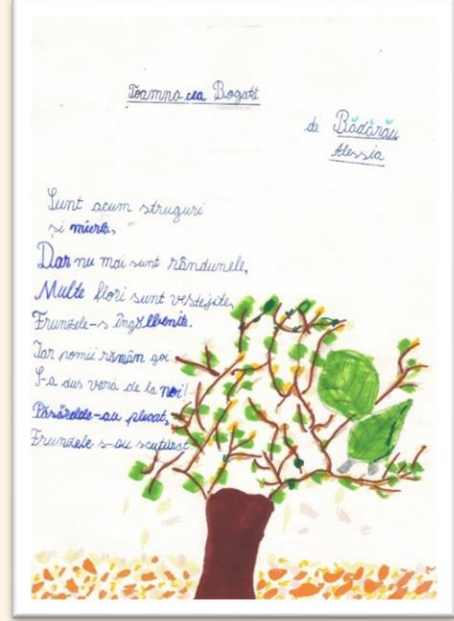 Toamna cea Bogată
de Bădărău
Alessia
Sunt acum struguri
și mierla,
Dar nu mai sunt rândunele,
Multe flori sunt veștejite,
Frunzele-s îngălbenite.
Iar pomii rămân goi
S-a dus vara de la noi!
Păsărelele-au plecat,
Frunzele s-au scuturat.